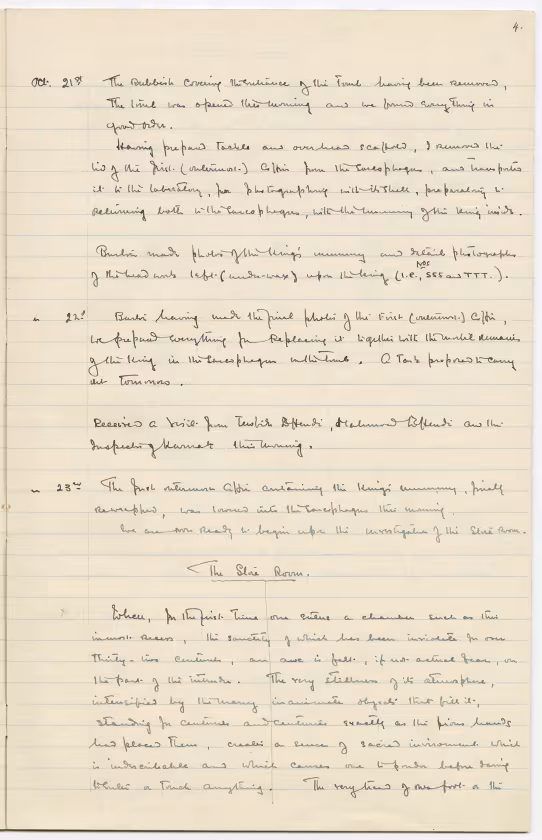 4.
Oct. 21st The Rubbish covering the entrance of the Tomb having been removed,
The tomb was opened this morning and we found everything in
good order.
Having prepared tackle and overhead scaffold, I removed the
lid of the first (outermost) Coffin from the Sarcophagus, and transported
it to the laboratory, for photographing with its shell, preparatory to
returning both to the Sarcophagus, with the mummy of the King inside.
Burton made photos of the King's mummy and detail photographs
of the head work left (under wax) upon the King (i.e., Nos SSS and TTT.).
" 22nd Burton having made the final photos of the First (outermost) Coffin,
we prepared everything for Replacing it together with the mortal remains
of the King in the Sarcophagus in the tomb. A Task proposed to carry
out tomorrow.
Received a visit from Tewfik Effendi, Mahmoud Effendi and the
Inspector of Karnak this morning.
" 23rd The first outermost Coffin containing the King's mummy, finally
rewrapped, was lowered into the Sarcophagus this morning.
We are now ready to begin upon the investigation of the Store Room.
The Store Room.
When, for the first time one enters a chamber such as this
inmost recess, the sanctity of which has been inviolate for over
thirty-two centuries, an awe is felt, if not actual fear, on
the part of the intruder. The very stillness of its atmosphere,
intensified by the many inanimate objects that fill it,
standing for centuries and centuries exactly as the pious hands
had placed them, creates a sense of sacred environment which
is indescribable and which causes one to ponder before daring
to touch anything. The very tread of one's foot or the